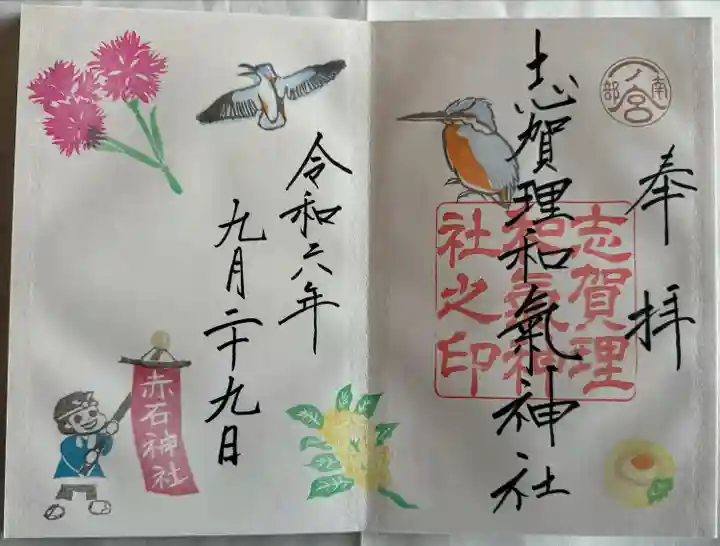 南部一ノ宮
奉拝
志賀理和氣神社
志賀理
和氣神
社之印
令和六年
九月二十九日
赤石神社